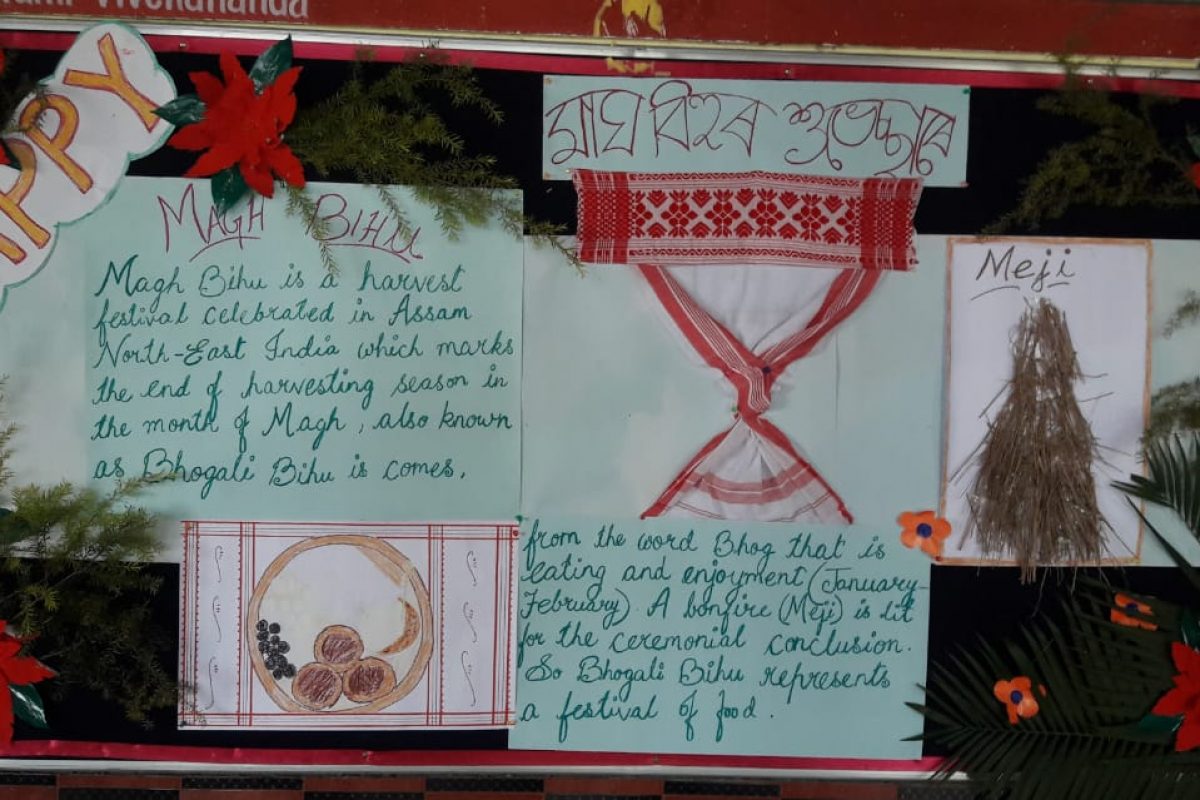 Vivekananda
APPY
মাঘ বিহুৰ শুভেচ্ছাৰে
MAGH BIHU
Magh Bihu is a harvest
festival celebrated in Assam
North-East India which marks
the end of harvesting season in
the month of Magh, also known
as Bhogali Bihu is comes.
Meji
from the word Bhog that is
eating and enjoyment (January-
February). A bonfire (Meji) is lit
for the ceremonial conclusion.
So Bhogali Bihu represents
a festival of food.